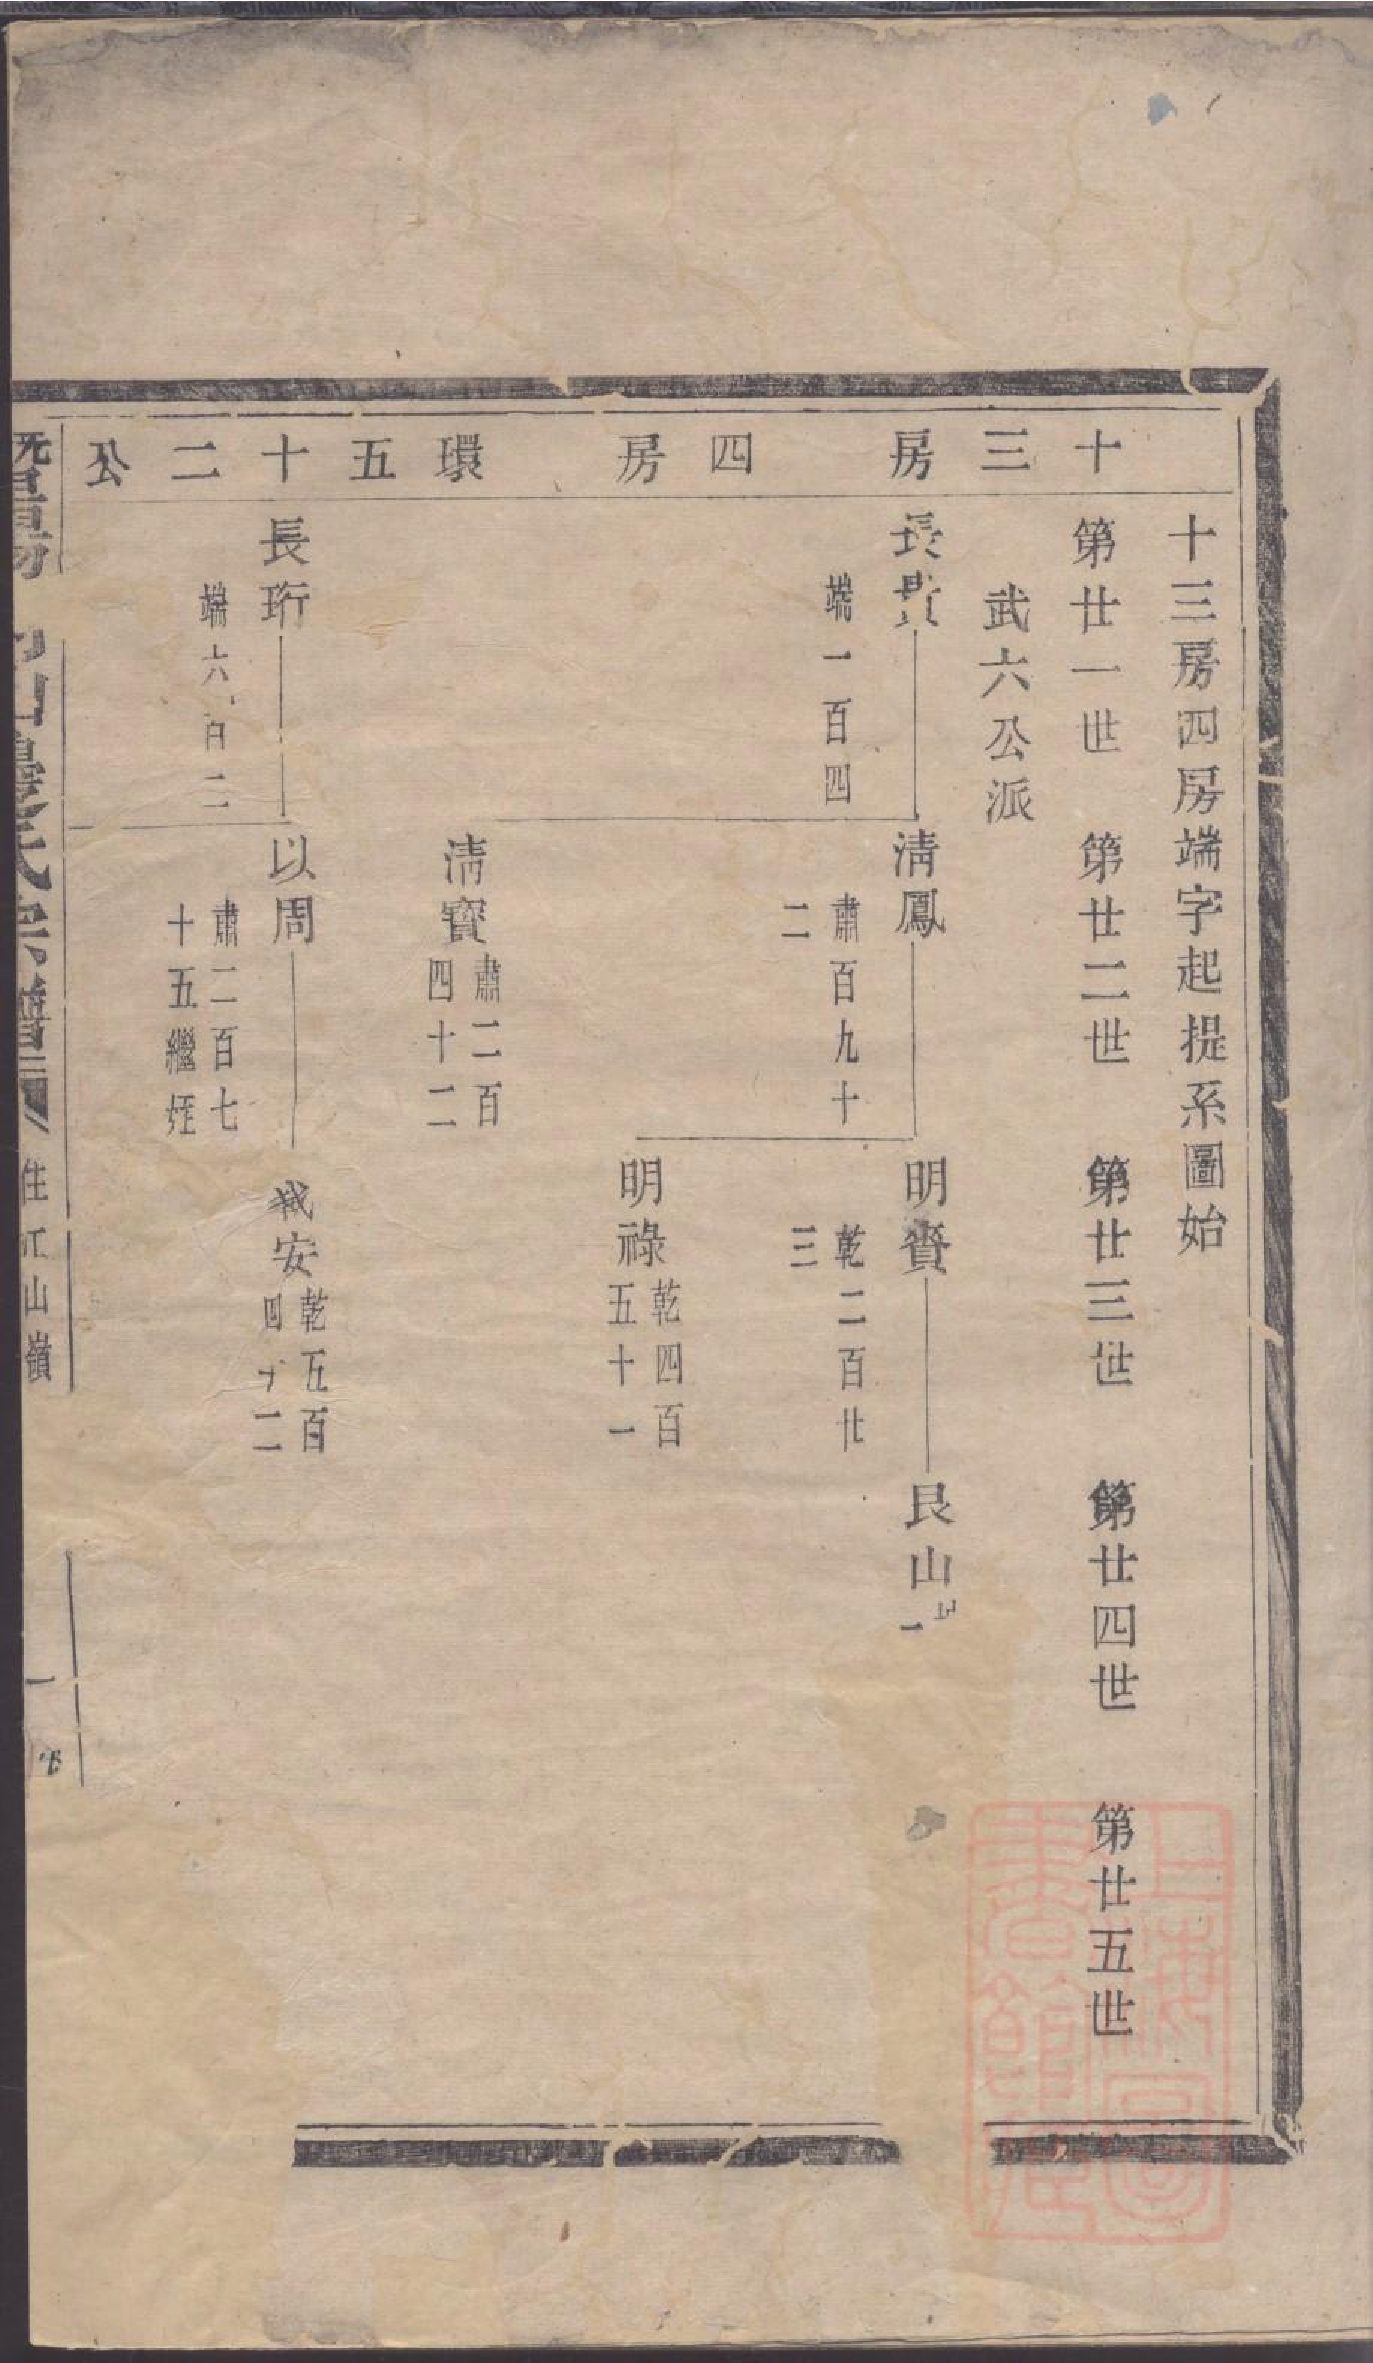 十三房四房端字起提系圖始
十三房 四房 環五十二公
第廿一世 第廿二世 第廿三世 第廿四世 第廿五世
武六公派
長貴 清鳳 明賚 艮山
端一百四
肅百九十
二
乾二百廿
三
一
明祿
乾四百
五十一
清寶
肅二百
四十二
長珩 以周 安
端六百二
肅二百七
十五繼姪
乾五百
四十二
暨陽 山邊氏宗譜
住江山嶺
一
上海圖書館藏